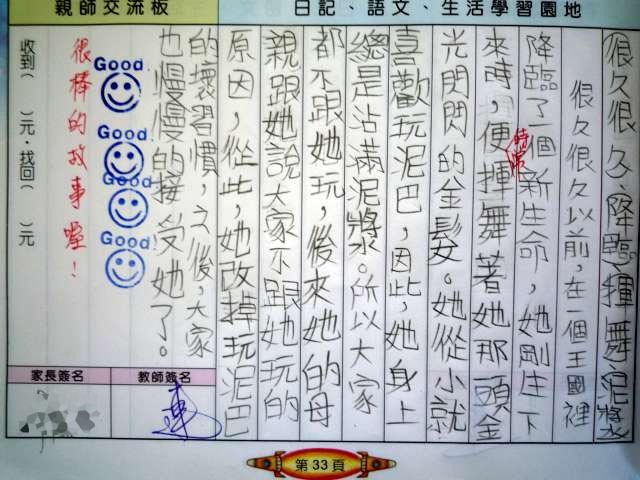 親師交流板
日記、語文、生活學習園地
很久很久 降臨 揮舞 泥漿
很久很久以前，在一個王國裡
降臨了一個新生命，她剛生下
來時，便揮舞著她那頭金
光閃閃的金髮。她從小就
喜歡玩泥巴，因此，她身上
總是沾滿泥漿。所以大家
都不跟她玩，後來她的母
親跟她說大家不跟她玩的
原因，從此，她改掉玩泥巴
的壞習慣，之後，大家
也慢慢的接受她了。
Good
Good
Good
Good
很棒的故事喔！
收到（ ）元．找回（ ）元
家長簽名
教師簽名
第33頁